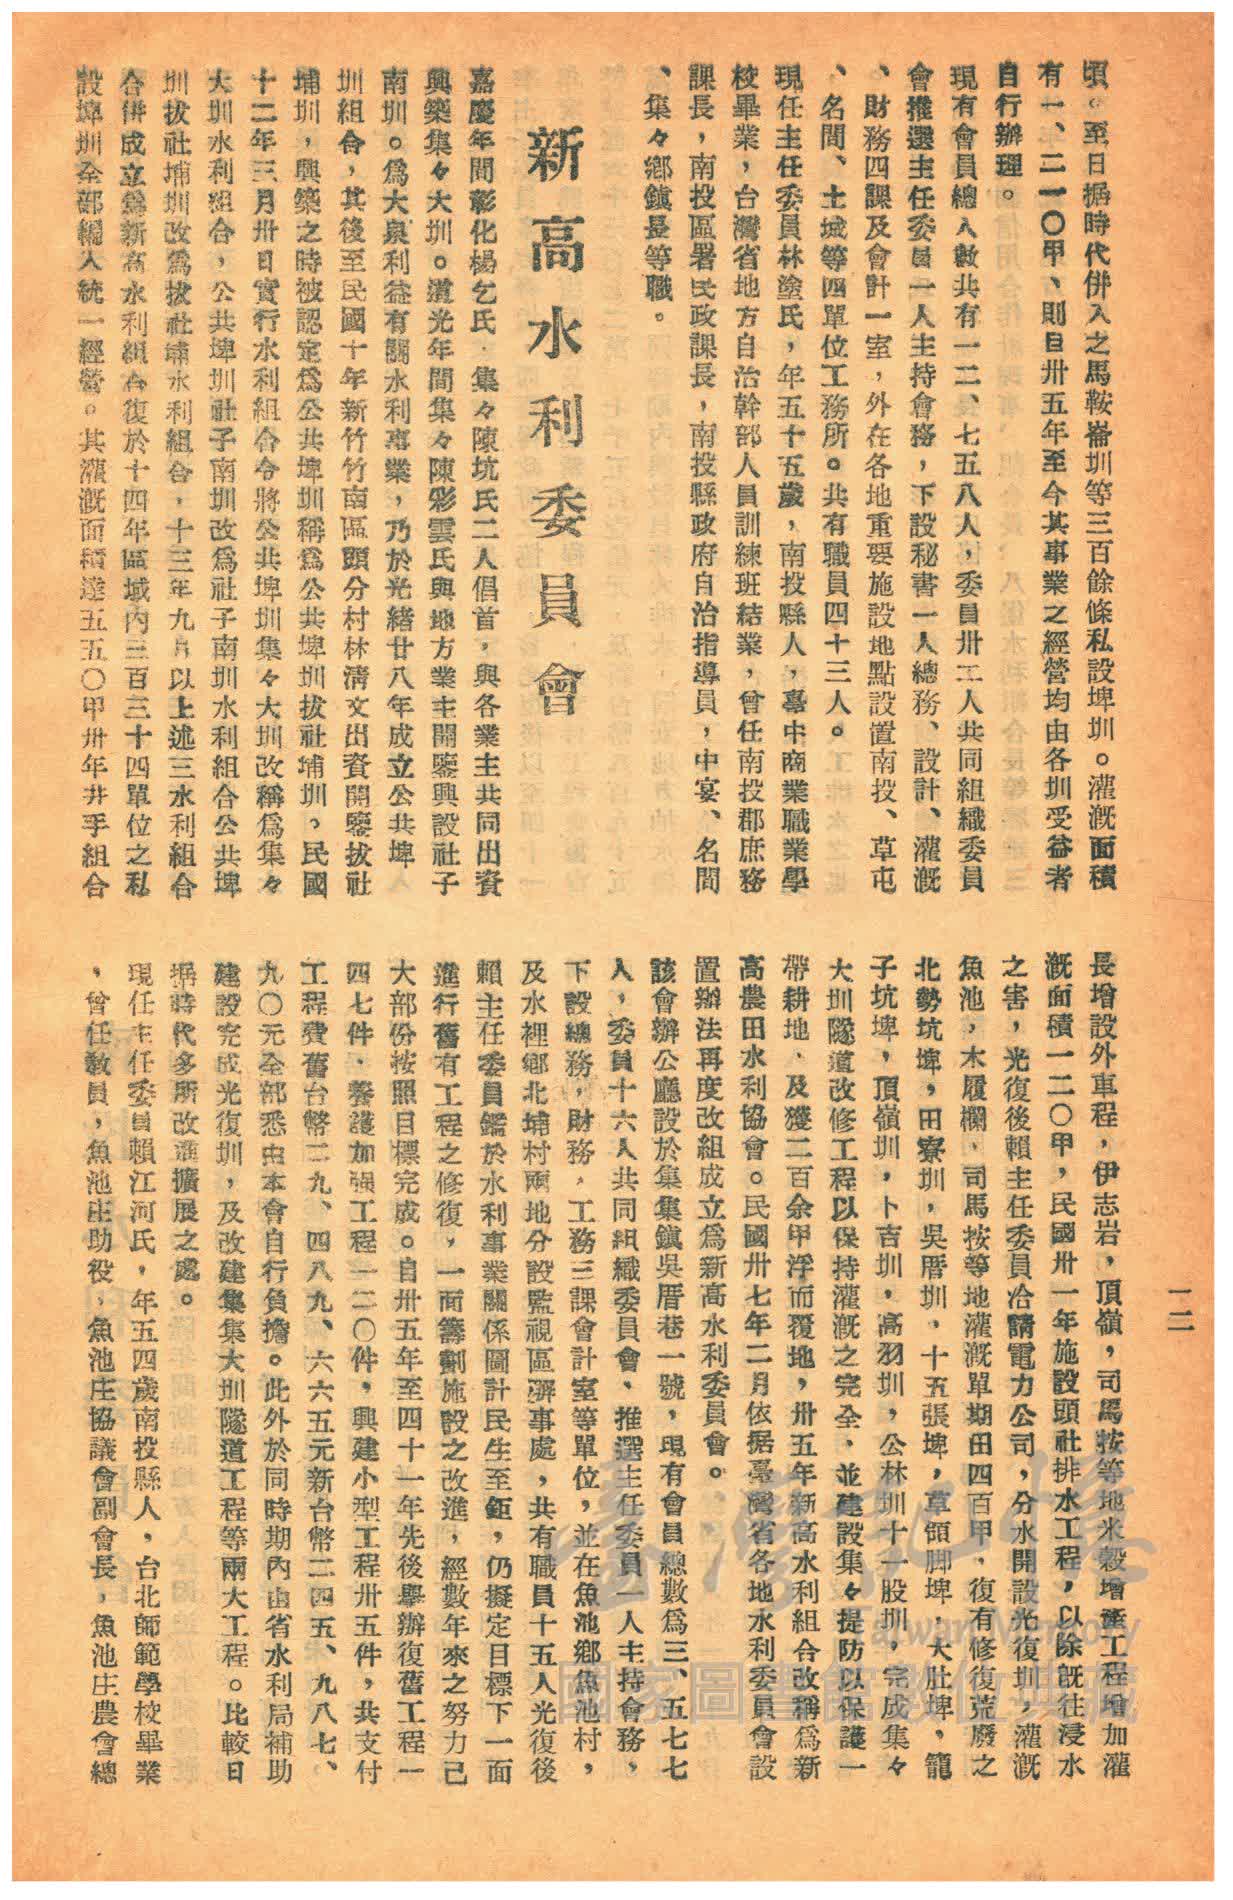 頃。至日据時代併入之馬鞍崙圳等三百餘條私設埤圳。灌漑面積
有一、二一〇甲、則自卅五年至今其事業之經營均由各圳受益者
自行辦理。
現有會員總人數共有一二、七五八人，委員卅二人共同組織委員
會推選主任委員一人主持會務，下設秘書一人總務、設計、灌漑
、財務四課及會計一室，外在各地重要施設地點設置南投、草屯
、名間、土城等四單位工務所。共有職員四十三人。
現任主任委員林塗氏，年五十五歲，南投縣人，臺中商業職業學
校畢業，台灣省地方自治幹部人員訓練班結業，曾任南投郡庶務
課長，南投區署民政課長，南投縣政府自治指導員，中寮、名間
、集々鄉鎮長等職。
新高水利委員會
嘉慶年間彰化楊乞氏．集々陳坑氏二人倡首，與各業主共同出資
興築集々大圳。道光年間集々陳彩雲氏與地方業主開鑿興設社子
南圳。爲大泉利益有關水利事業，乃於光緒廿八年成立公共埤
圳組合，其後至民國十年新竹竹南區頭分村林清文出資開鑿拔社
埔圳，興築之時被認定爲公共埤圳稱爲公共埤圳拔社埔圳，民國
十二年三月卅日實行水利組合令將公共埤圳集々大圳改稱爲集々
大圳水利組合，公共埤圳社子南圳改爲社子南圳水利組合公共埤
圳拔社埔圳改爲拔社埔水利組合，十三年九月以上述三水利組合
合併成立爲新高水利組合復於十四年區域內三百三十四單位之私
設埤圳全部編入統一經營。其灌漑面積達五五〇甲卅年井手組合
長增設外車程，伊志岩，頂嶺，司馬按等地米穀增產工程增加灌
漑面積一二〇甲，民國卅一年施設頭社排水工程，以除旣往浸水
之害，光復後賴主任委員洽請電力公司，分水開設光復圳，灌漑
魚池，木履欄．司馬按等地灌漑單期田四百甲．復有修復荒廢之
北勢坑埤，田寮圳，吳厝圳．十五張埤，草領脚埤，大肚埤，籠
子坑埤，頂嶺圳，卜吉圳，高羽圳，公林圳十一股圳，完成集々
大圳隧道改修工程以保持灌漑之完全．並建設集々提防以保護一
帶耕地．及獲二百余甲浮而覆地，卅五年新高水利組合改稱爲新
高農田水利協會。民國卅七年二月依据臺灣省各地水利委員會設
置辦法再度改組成立爲新高水利委員會。
該會辦公廳設於集集鎮吳厝巷一號，現有會員總數爲三、五七七
人，委員十六人共同組織委員會、推選主任委員一人主持會務，
下設總務，財務，工務三課會計室等單位，並在魚池鄉魚池村，
及水裡鄉北埔村兩地分設監視區辦事處，共有職員十五人光復後
賴主任委員鑑於水利事業關係國計民生至鉅，仍擬定目標下一面
進行舊有工程之修復，一面籌劃施設之改進，經數年來之努力已
大部份按照目標完成。自卅五年至四十一年先後舉辦復舊工程一
四七件．養護加强工程一二〇件，興建小型工程卅五件，共支付
工程費舊台幣二九、四八九、六六五元新台幣二四五、九八七、
九〇元全部悉由本會自行負擔。此外於同時期內由省水利局補助
建設完成光復圳，及改建集集大圳隧道工程等兩大工程。比較日
据時代多所改進擴展之處。
現任主任委員賴江河氏，年五四歲南投縣人，台北師範學校畢業
，曾任教員，魚池庄助役，魚池庄協議會副會長，魚池庄農會總
二二
臺灣記憶
Taiwan Memory
國家圖書館數位典藏